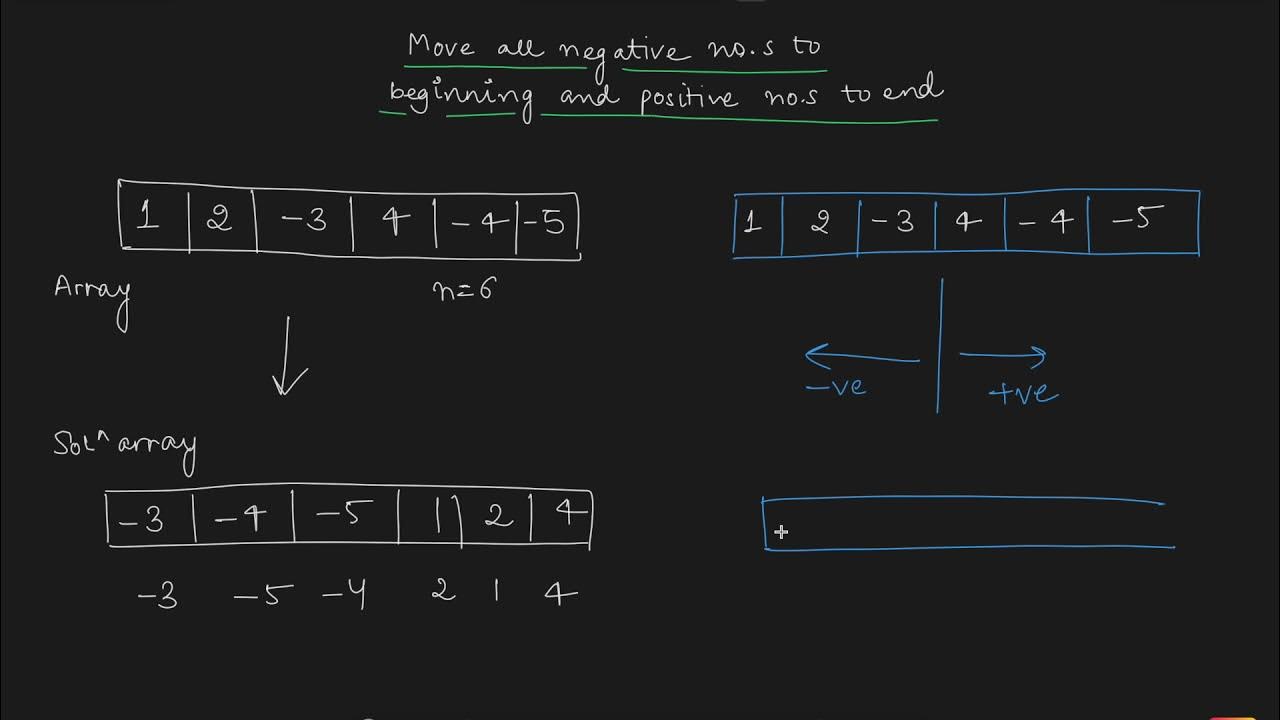 Move all negative no.s to
beginning and positive no.s to end
1 2 -3 4 -4 -5
Array n=6
Solⁿ array
-3 -4 -5 1 2 4
-3 -5 -4 2 1 4
1 2 -3 4 -4 -5
-ve +ve